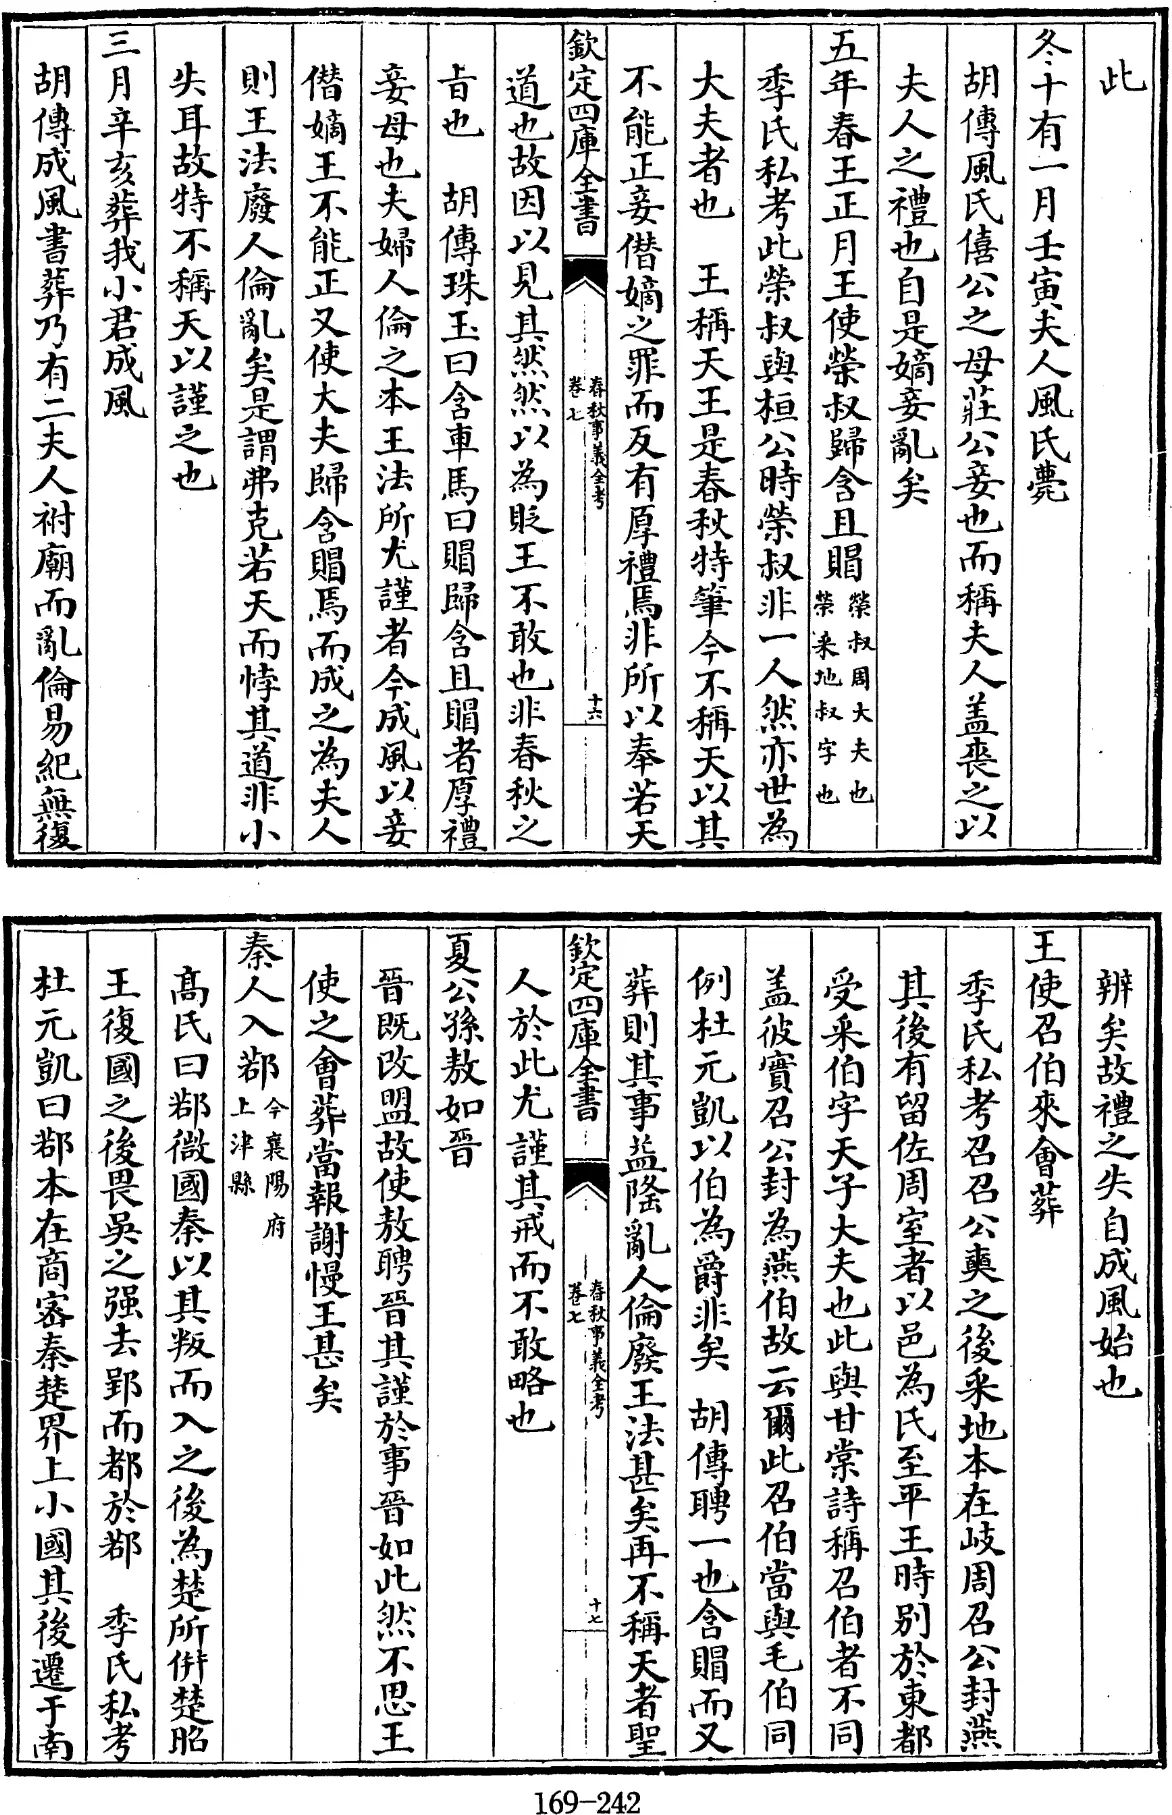 此
冬十有一月壬寅夫人風氏薨
胡傳風氏僖公之母莊公妾也而稱夫人盖喪之以
夫人之禮也自是嫡妾亂矣
五年春王正月王使榮叔歸含且賵榮叔周大夫也
榮采地叔字也
季氏私考此榮叔與桓公時榮叔非一人然亦世為
大夫者也　王稱天王是春秋特筆今不稱天以其
不能正妾僭嫡之罪而反有厚禮焉非所以奉若天
欽定四庫全書
春秋事義全考
卷七
十六
道也故因以見其然然以為貶王不敢也非春秋之
旨也　胡傳珠玉曰含車馬曰賵歸含且賵者厚禮
妾母也夫婦人倫之本王法所尤謹者今成風以妾
僭嫡王不能正又使大夫歸含賵焉而成之為夫人
則王法廢人倫亂矣是謂弗克若天而悖其道非小
失耳故特不稱天以謹之也
三月辛亥葬我小君成風
胡傳成風書葬乃有二夫人祔廟而亂倫易紀無復
辨矣故禮之失自成風始也
王使召伯來會葬
季氏私考召召公奭之後采地本在岐周召公封燕
其後有留佐周室者以邑為氏至平王時别於東都
受采伯字天子大夫也此與甘棠詩稱召伯者不同
盖彼實召公封為燕伯故云爾此召伯當與毛伯同
例杜元凱以伯為爵非矣　胡傳聘一也含賵而又
葬則其事益隆亂人倫廢王法甚矣再不稱天者聖
欽定四庫全書
春秋事義全考
卷七
十七
人於此尤謹其戒而不敢略也
夏公孫敖如晉
晉既改盟故使敖聘晉其謹於事晉如此然不思王
使之會葬當報謝慢王甚矣
秦人入鄀今襄陽府
上津縣
髙氏曰鄀微國秦以其叛而入之後為楚所併楚昭
王復國之後畏吳之强去郢而都於鄀　季氏私考
杜元凱曰鄀本在商密秦楚界上小國其後遷于南
169-242